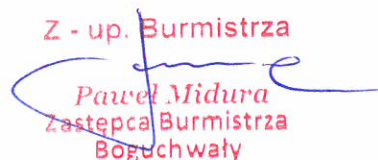 Z - up. Burmistrza
Paweł Midura
Zastępca Burmistrza
Boguchwały